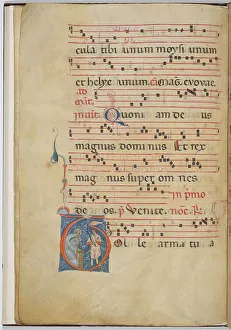 cula tibi unum moysi unum
et helye unum. ad mag. evovae.
Quoni am de us
magnus dominus et rex
magnus super om nes
de os. ps. Venite. in pmo
olle arma tu a